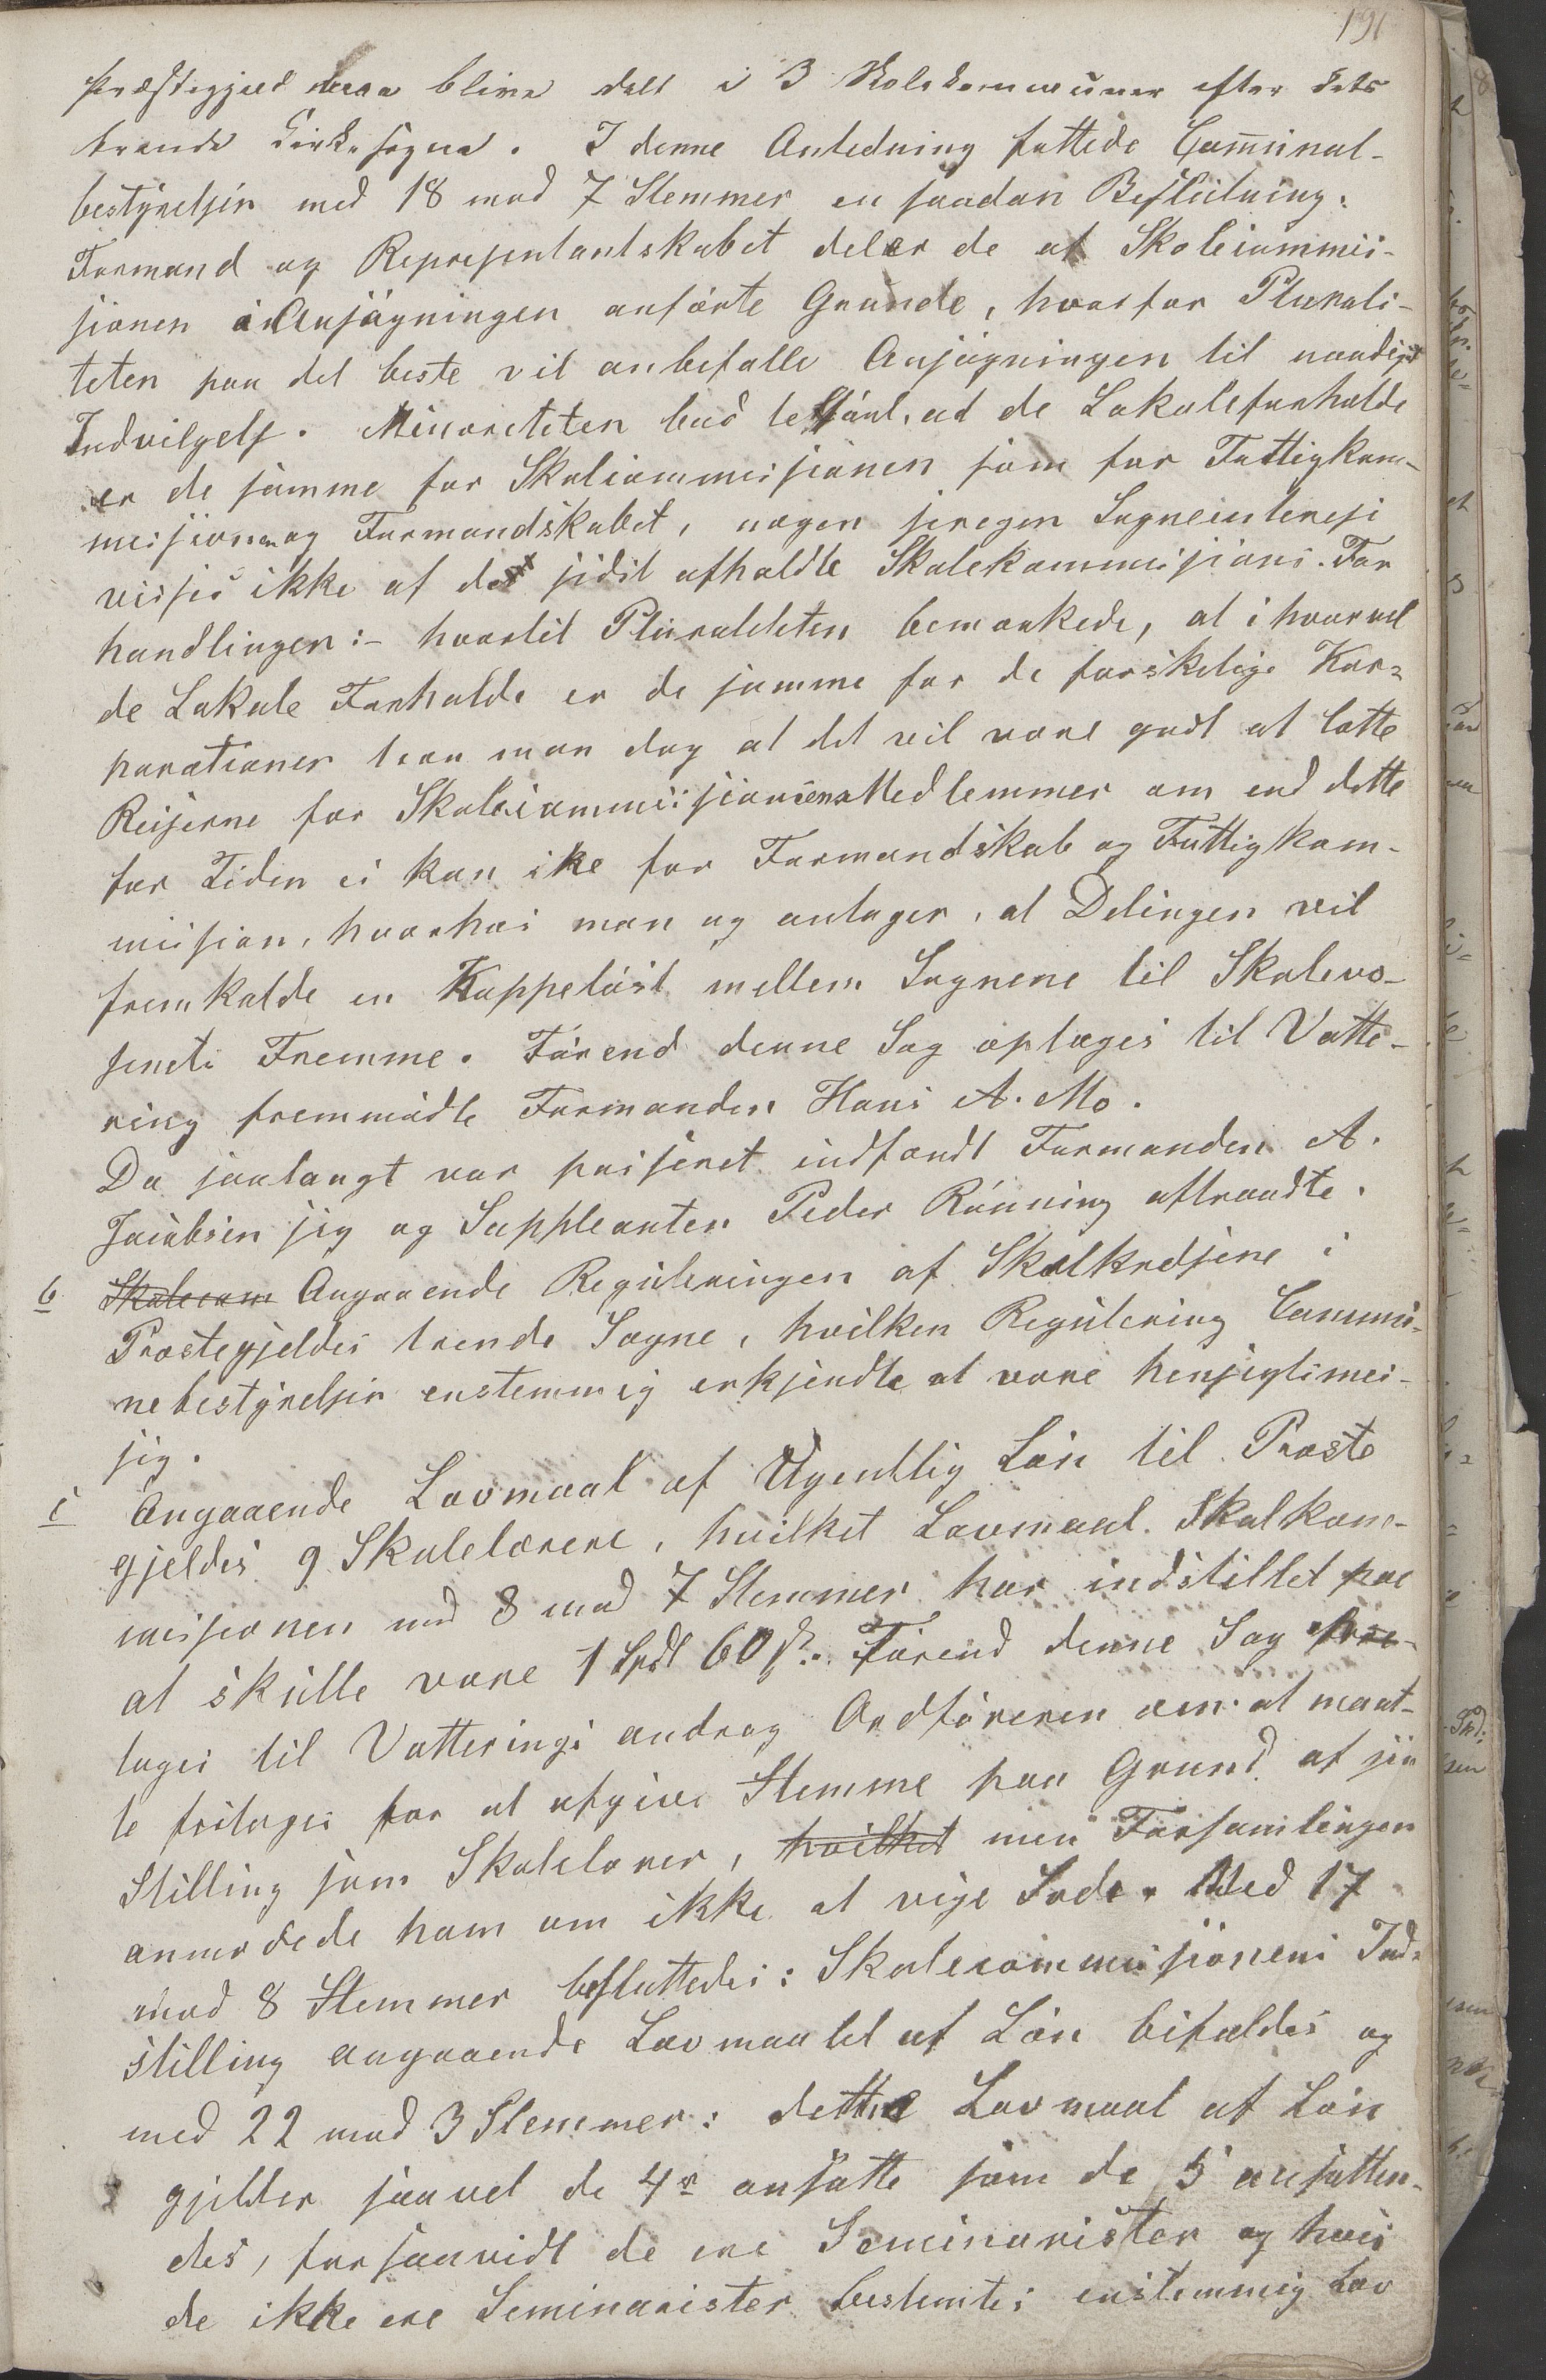 191
Præstegjeld maa blive delt i 3 Skolekommuner efter dets
trende Kirkesogne. I denne Anledning fattede Communal-
bestÿrelsen med 18 mod 7 Stemmer en saadan Beslutning:
Formand og Representantskabet deler de af Skolecommis-
sionen i Ansøgningen anførte Grunde, hvorfor Plurali-
teten paa det beste vil anbefalle Ansøgningen til naadigst
Indvilgelse. Minoriteten bad tilført, at de Lokaleforholde
er de samme for Skolecommissionen som for Fattigkom-
missionen og Formandskabet, nogen seregen Sogneinterese
visses ikke af de sidst afholdte Skolekommissions-For
handlinger:- hvortil Pluraliteten bemærkede, at ihvorvel
de Lokale Forholde er de samme for de forskelige Kor-
parationer tror man dog at det vil være godt at lætte
Reiserne for Skolecommissionens Medlemmer om end dette
for Tiden ei kan ske for Formandskab og Fattigkom-
mission, hvorhos man og antager, at Delingen vil
fremkalde en Kappeløst mellem Sognene til Skolevæ-
senets Fremme. Førend denne Sag optoges til Votte-
ring fremmødte Formanden Hans A. Mo.
Da saalangt var passeret indfandt Formanden A.
Jacobsen sig og Suppleanten Peder Rønning aftraadte.
b Skolecom Angaaende Reguleringen af Skolkredsene i
Præstegjeldes trende Sogne, hvilken Regulering Commu-
nebestÿrelsen enstemmig erkjendte at være hensigtsmes-
sig.
c Angaaende Lavmaal af Ugentlig Løn til Præste
gjeldes 9 Skolelærere, hvilket Lavmaal Skolkom-
missionen med 8 mod 7 Stemmer har indstillet paa
at skulle være 1 Spdl 60 s. Førend denne Sag fore-
toges til Votterings androg Ordføreren om at maat-
te fritages for at afgive Stemme paa Grund af sin
Stilling som Skolelærer, hvilket men Forsamlingen
anmodede ham om ikke at vige Sæde. Med 17
mod 8 Stemmer besluttedes: Skolecommissionens Ind-
stilling angaaende Lavmaalet af Løn bifaldes og
med 22 mod 3 Stemmer: dette Lavmaal af Løn
gjelder saavel de 4r ansatte som de 5 ansatten-
des, forsaavidt de ere Seminarister og hvis
de ikke ere Seminarister bestemtes enstemmig Lav